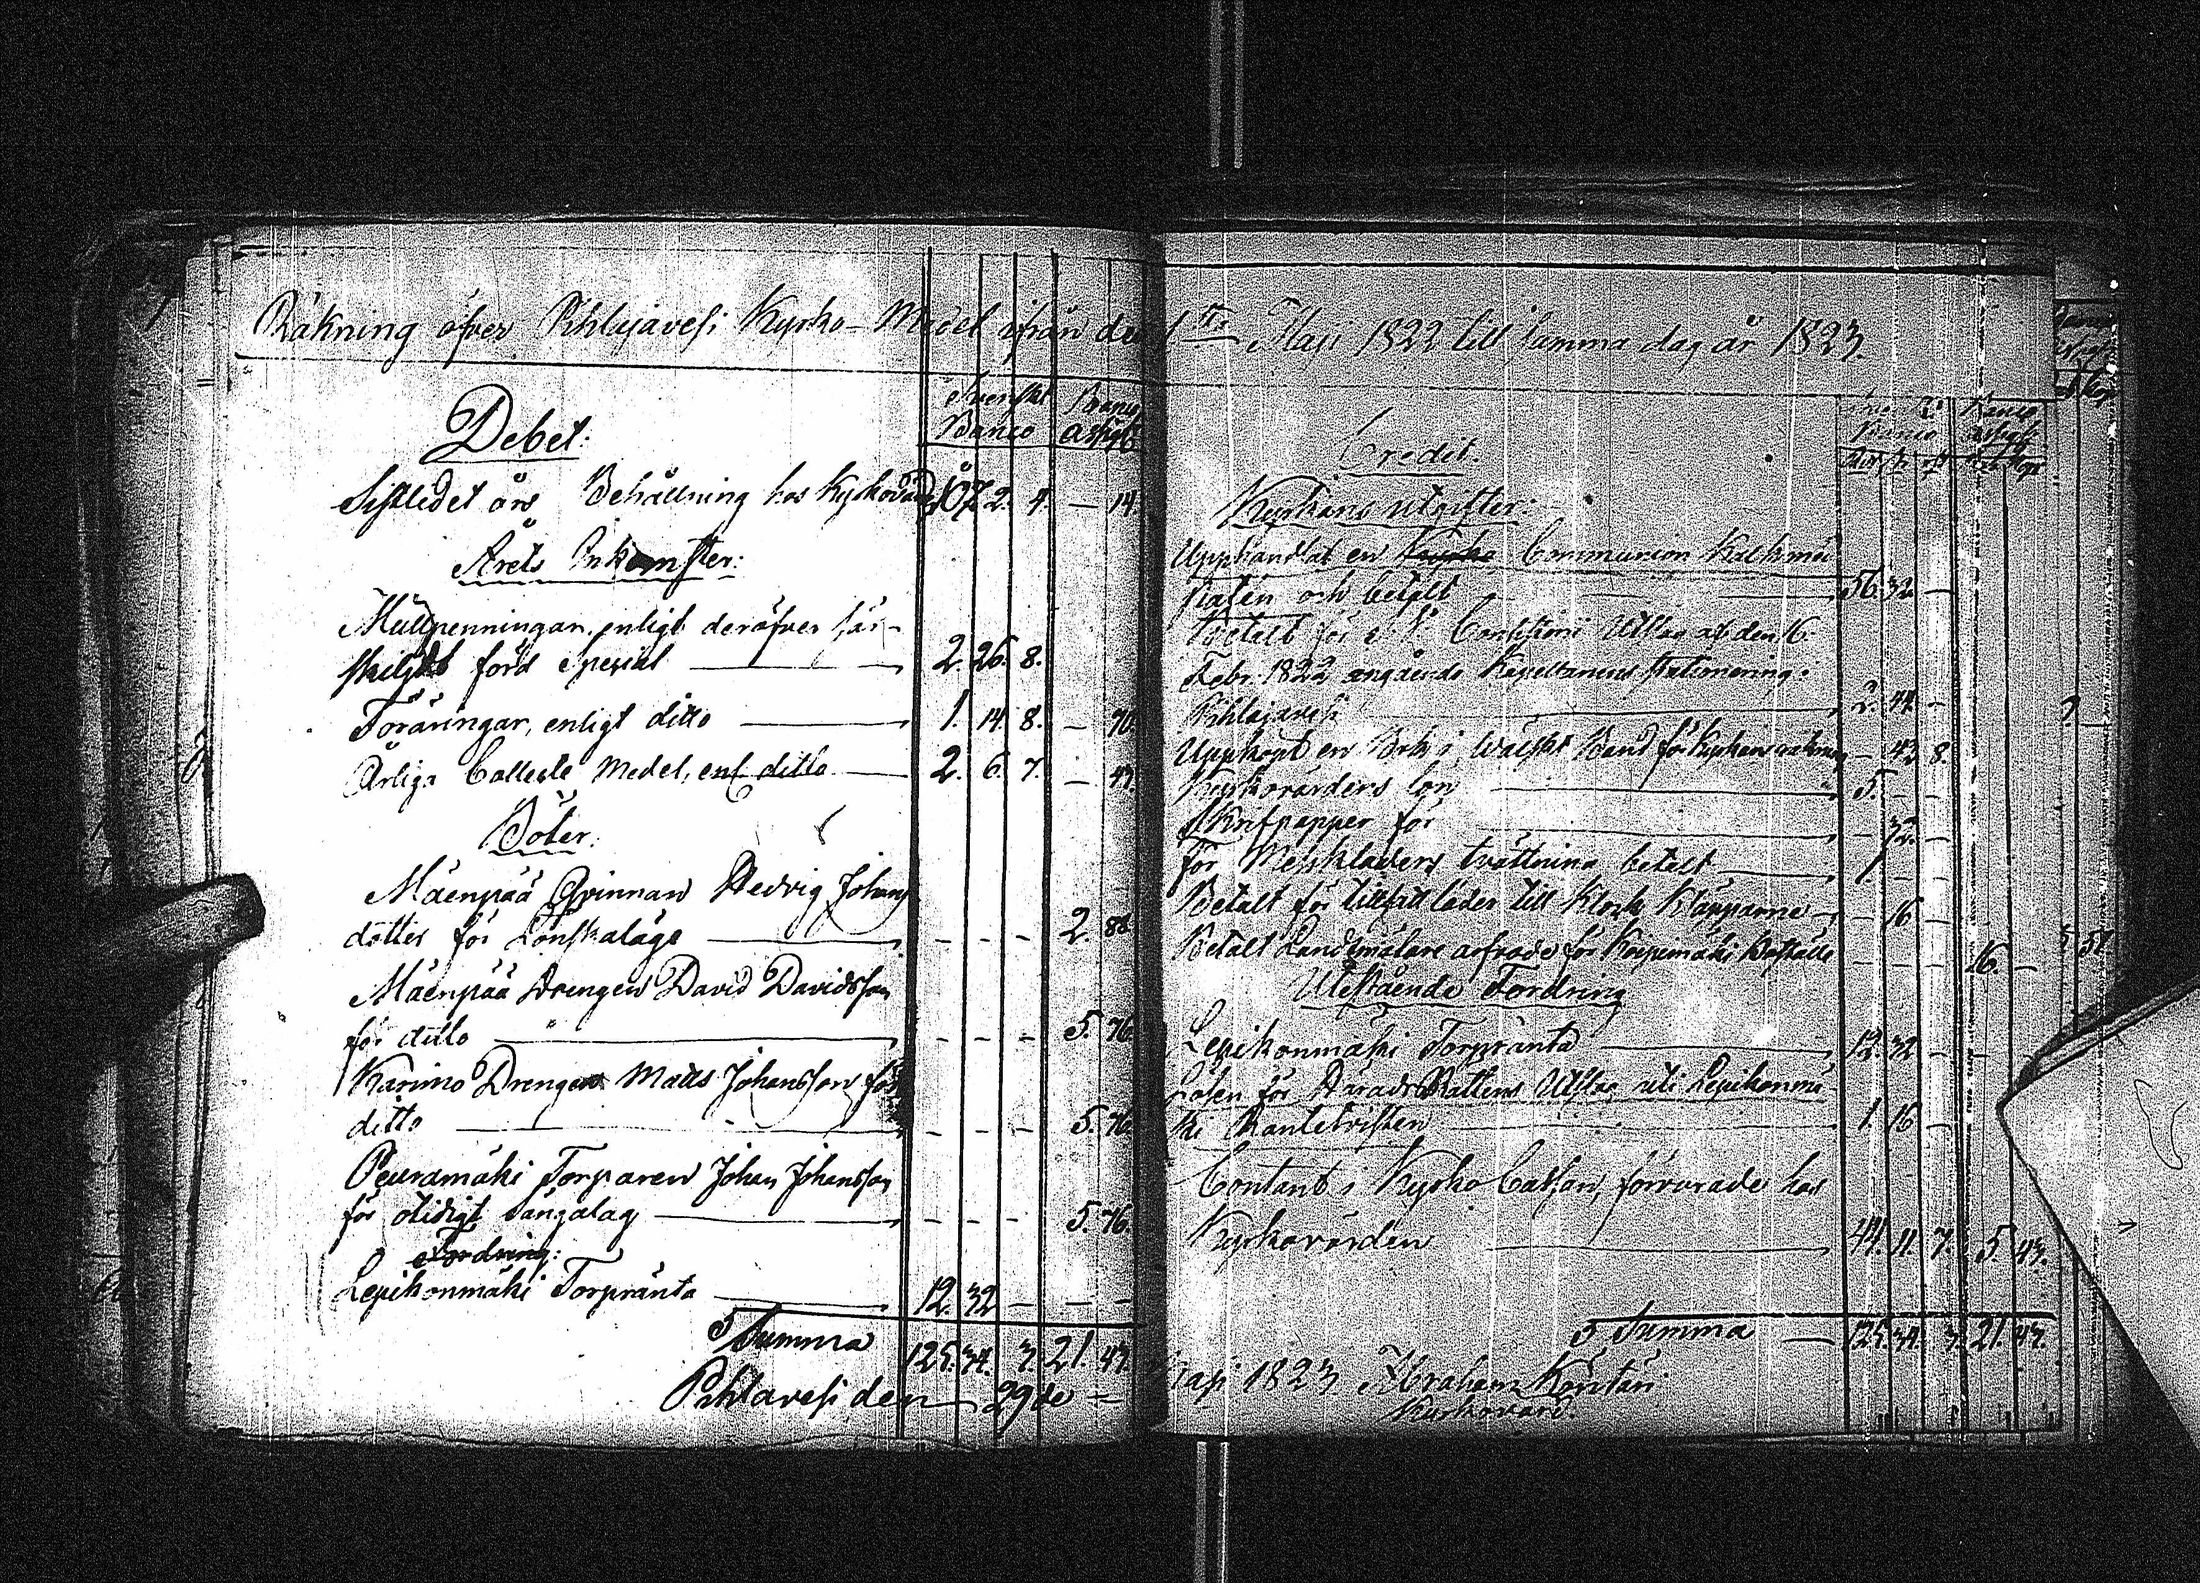 Räkning öfver Pihlajavesi Kyrko-Medel ifrån den 1sta Maji 1822 till samma dag år 1823.
Debet:
Svenskt Banco
Banco Assign:
Sistledet års Behållning hos Kyrkovärden 107. 2. 4. — 14.
Årets Inkomster:
Mullpenningar enligt deröfver sär-
skildt förd Special — 2. 26. 8.
Föräringar, enligt ditto — 1. 14. 8. — 70.
Årliga Collecte Medel, enl. ditto — 2. 6. 7. — 47.
Böter:
Mäenpää Qvinnan Hedvig Johans
dotter för Lönskaläge — - - - 2. 88.
Mäenpää Drengen David Davidsson
för ditto — - - - 5. 76.
Karimo Drengen Matts Johansson för
ditto — - - - 5. 76.
Peuramäki Torparen Johan Johansson
för otidigt sängalag — - - - 5. 76.
Fordring:
Lepikonmäki Torpränta — 12. 32 — — —
Summa 125. 34. 3. 21. 47.
Pihlavesi den 29de —
Credit.
Banco
Kyrkans utgifter:
Upphandlat en Communion Kalk med
paten och betalt — 56. 32 —
Betalt för Utslag af den 16.
Febr. 1822 angående Kapellanens stationering i
Pihlajavesi — 2. 44. —
Uppköpt en Bok i Wälskt Band för Kyrkans räkning — 43 8.
Kyrkovärdens lön — 5. — —
Skrifpapper för — 32. —
för Messkläders tvättning betalt — 1. — —
Betalt för läder till Klock Kläpparne — 16 —
Betalt Landtmätare arfvode för Korpimäki Boställe — — — 16. —
Utestående Fordring
Lepikonmäki Torpränta — 12. 32 —
Lösen för Härads Rättens Utslag uti Lepikonmä
ki Räntetvisten — 1. 16 —
Contant i Kyrko Cassan, förvarade hos
Kyrkovärden — 44. 11. 7. 5. 47.
Summa — 125. 34. 3. 21. 47.
Maji 1823 Abraham
Kyrkovärd.